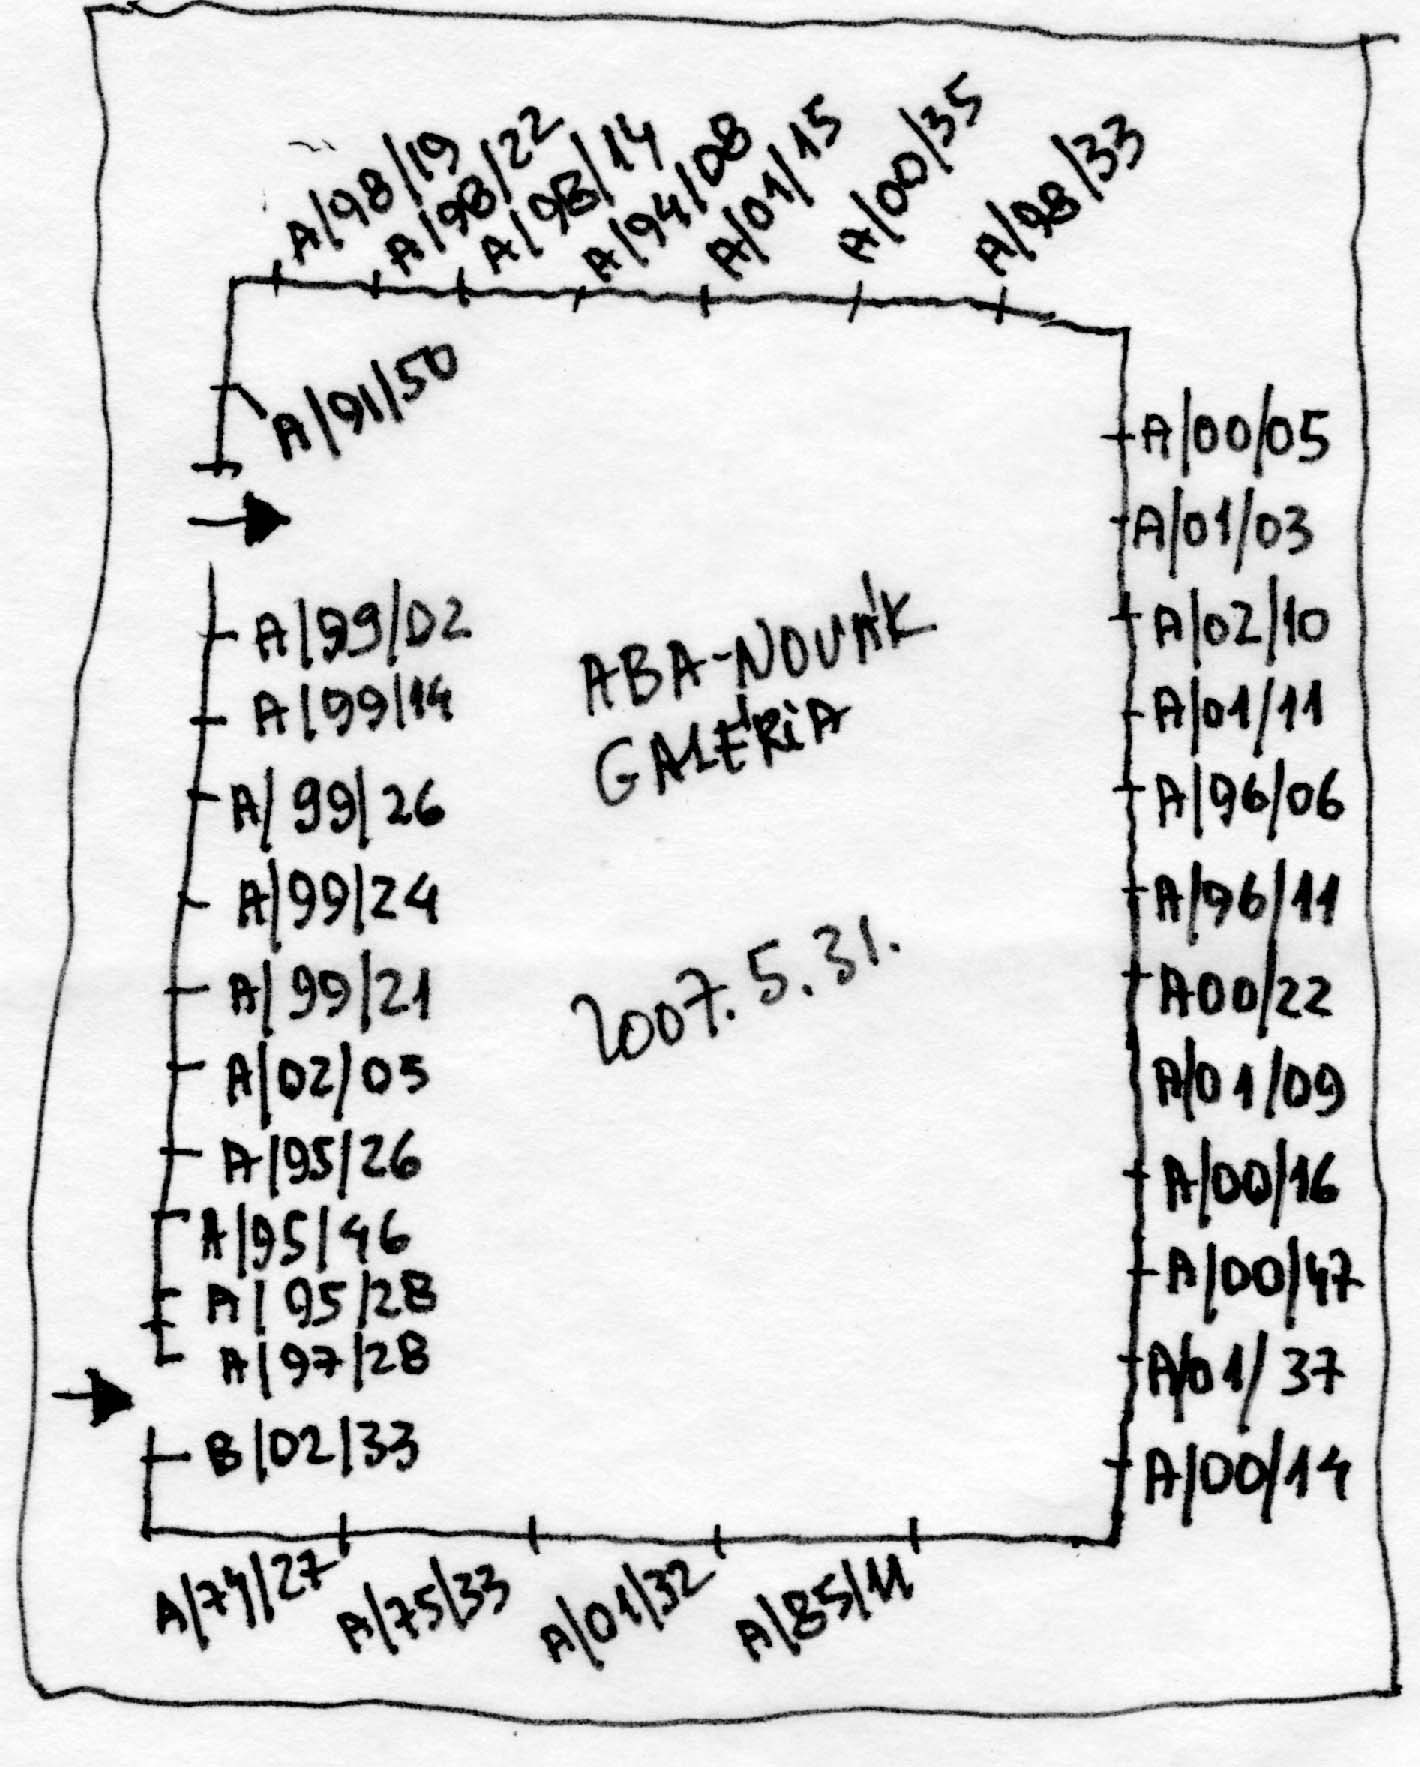 A/98/19
A/98/22
A/98/14
A/94/08
A/01/15
A/00/35
A/98/33
A/91/50
A/99/02
A/99/14
A/99/26
A/99/24
A/99/21
A/02/05
A/95/26
A/95/46
A/95/28
A/97/28
B/02/33
ABA-NOVÁK
GALÉRIA
2007. 5. 31.
A/00/05
A/01/03
A/02/10
A/01/11
A/96/06
A/96/11
A00/22
A/01/09
A/00/16
A/00/47
A/01/37
A/00/14
A/74/27
A/75/33
A/01/32
A/85/11